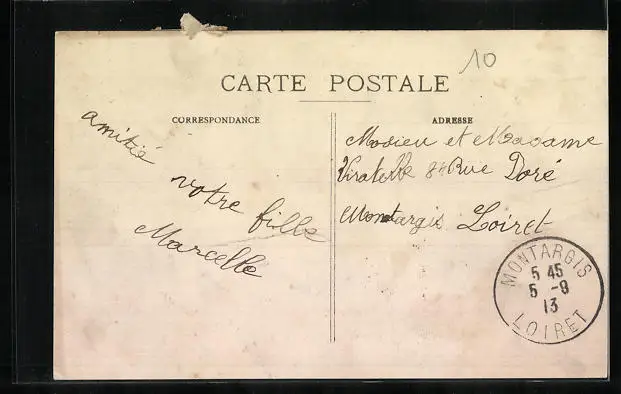 10
CARTE POSTALE
CORRESPONDANCE
amitié
votre fille
Marcelle
ADRESSE
Mosieu et Madame
84 Rue Doré
Montargis Loiret
MONTARGIS
5 45
5 -9
13
LOIRET